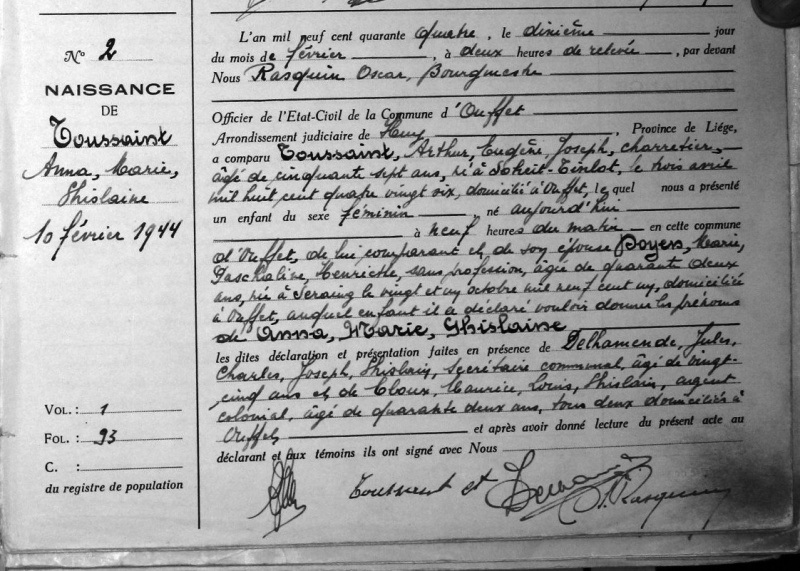 N° 2
NAISSANCE
DE
Toussaint
Anna, Marie,
Ghislaine
10 février 1944
VOL. : 1
FOL. : 93
C. :
du registre de population
L'an mil neuf cent quarante quatre, le dixième jour
du mois de février, à deux heures de relevée, par devant
Nous Rasquin Oscar, Bourgmestre
Officier de l'Etat-Civil de la Commune d'Ouffet
Arrondissement judiciaire de Huy, Province de Liége,
a comparu Toussaint, Arthur, Eugène, Joseph, charretier,
âgé de cinquante sept ans, né à Soheit-Tinlot, le trois avril
mil huit cent quatre vingt six, domicilié à Ouffet, le quel nous a présenté
un enfant du sexe féminin, né aujourd'hui
à neuf heures du matin en cette commune
d'Ouffet, de lui comparant et de son épouse Poyers, Marie,
Paschaline, Henriette, sans profession, âgée de quarante deux
ans, née à Seraing le vingt et un octobre mil neuf cent un, domiciliée
à Ouffet, auquel enfant il a déclaré vouloir donner les prénoms
de Anna, Marie, Ghislaine
les dites déclaration et présentation faites en présence de Delhamende, Jules,
Charles, Joseph, Ghislain, secrétaire communal, âgé de vingt-
cinq ans et de Cloux, Maurice, Louis, Ghislain, agent
colonial, âgé de quarante deux ans, tous deux domiciliés à
Ouffet et après avoir donné lecture du présent acte au
déclarant et aux témoins ils ont signé avec Nous
Toussaint et
O. Rasquin